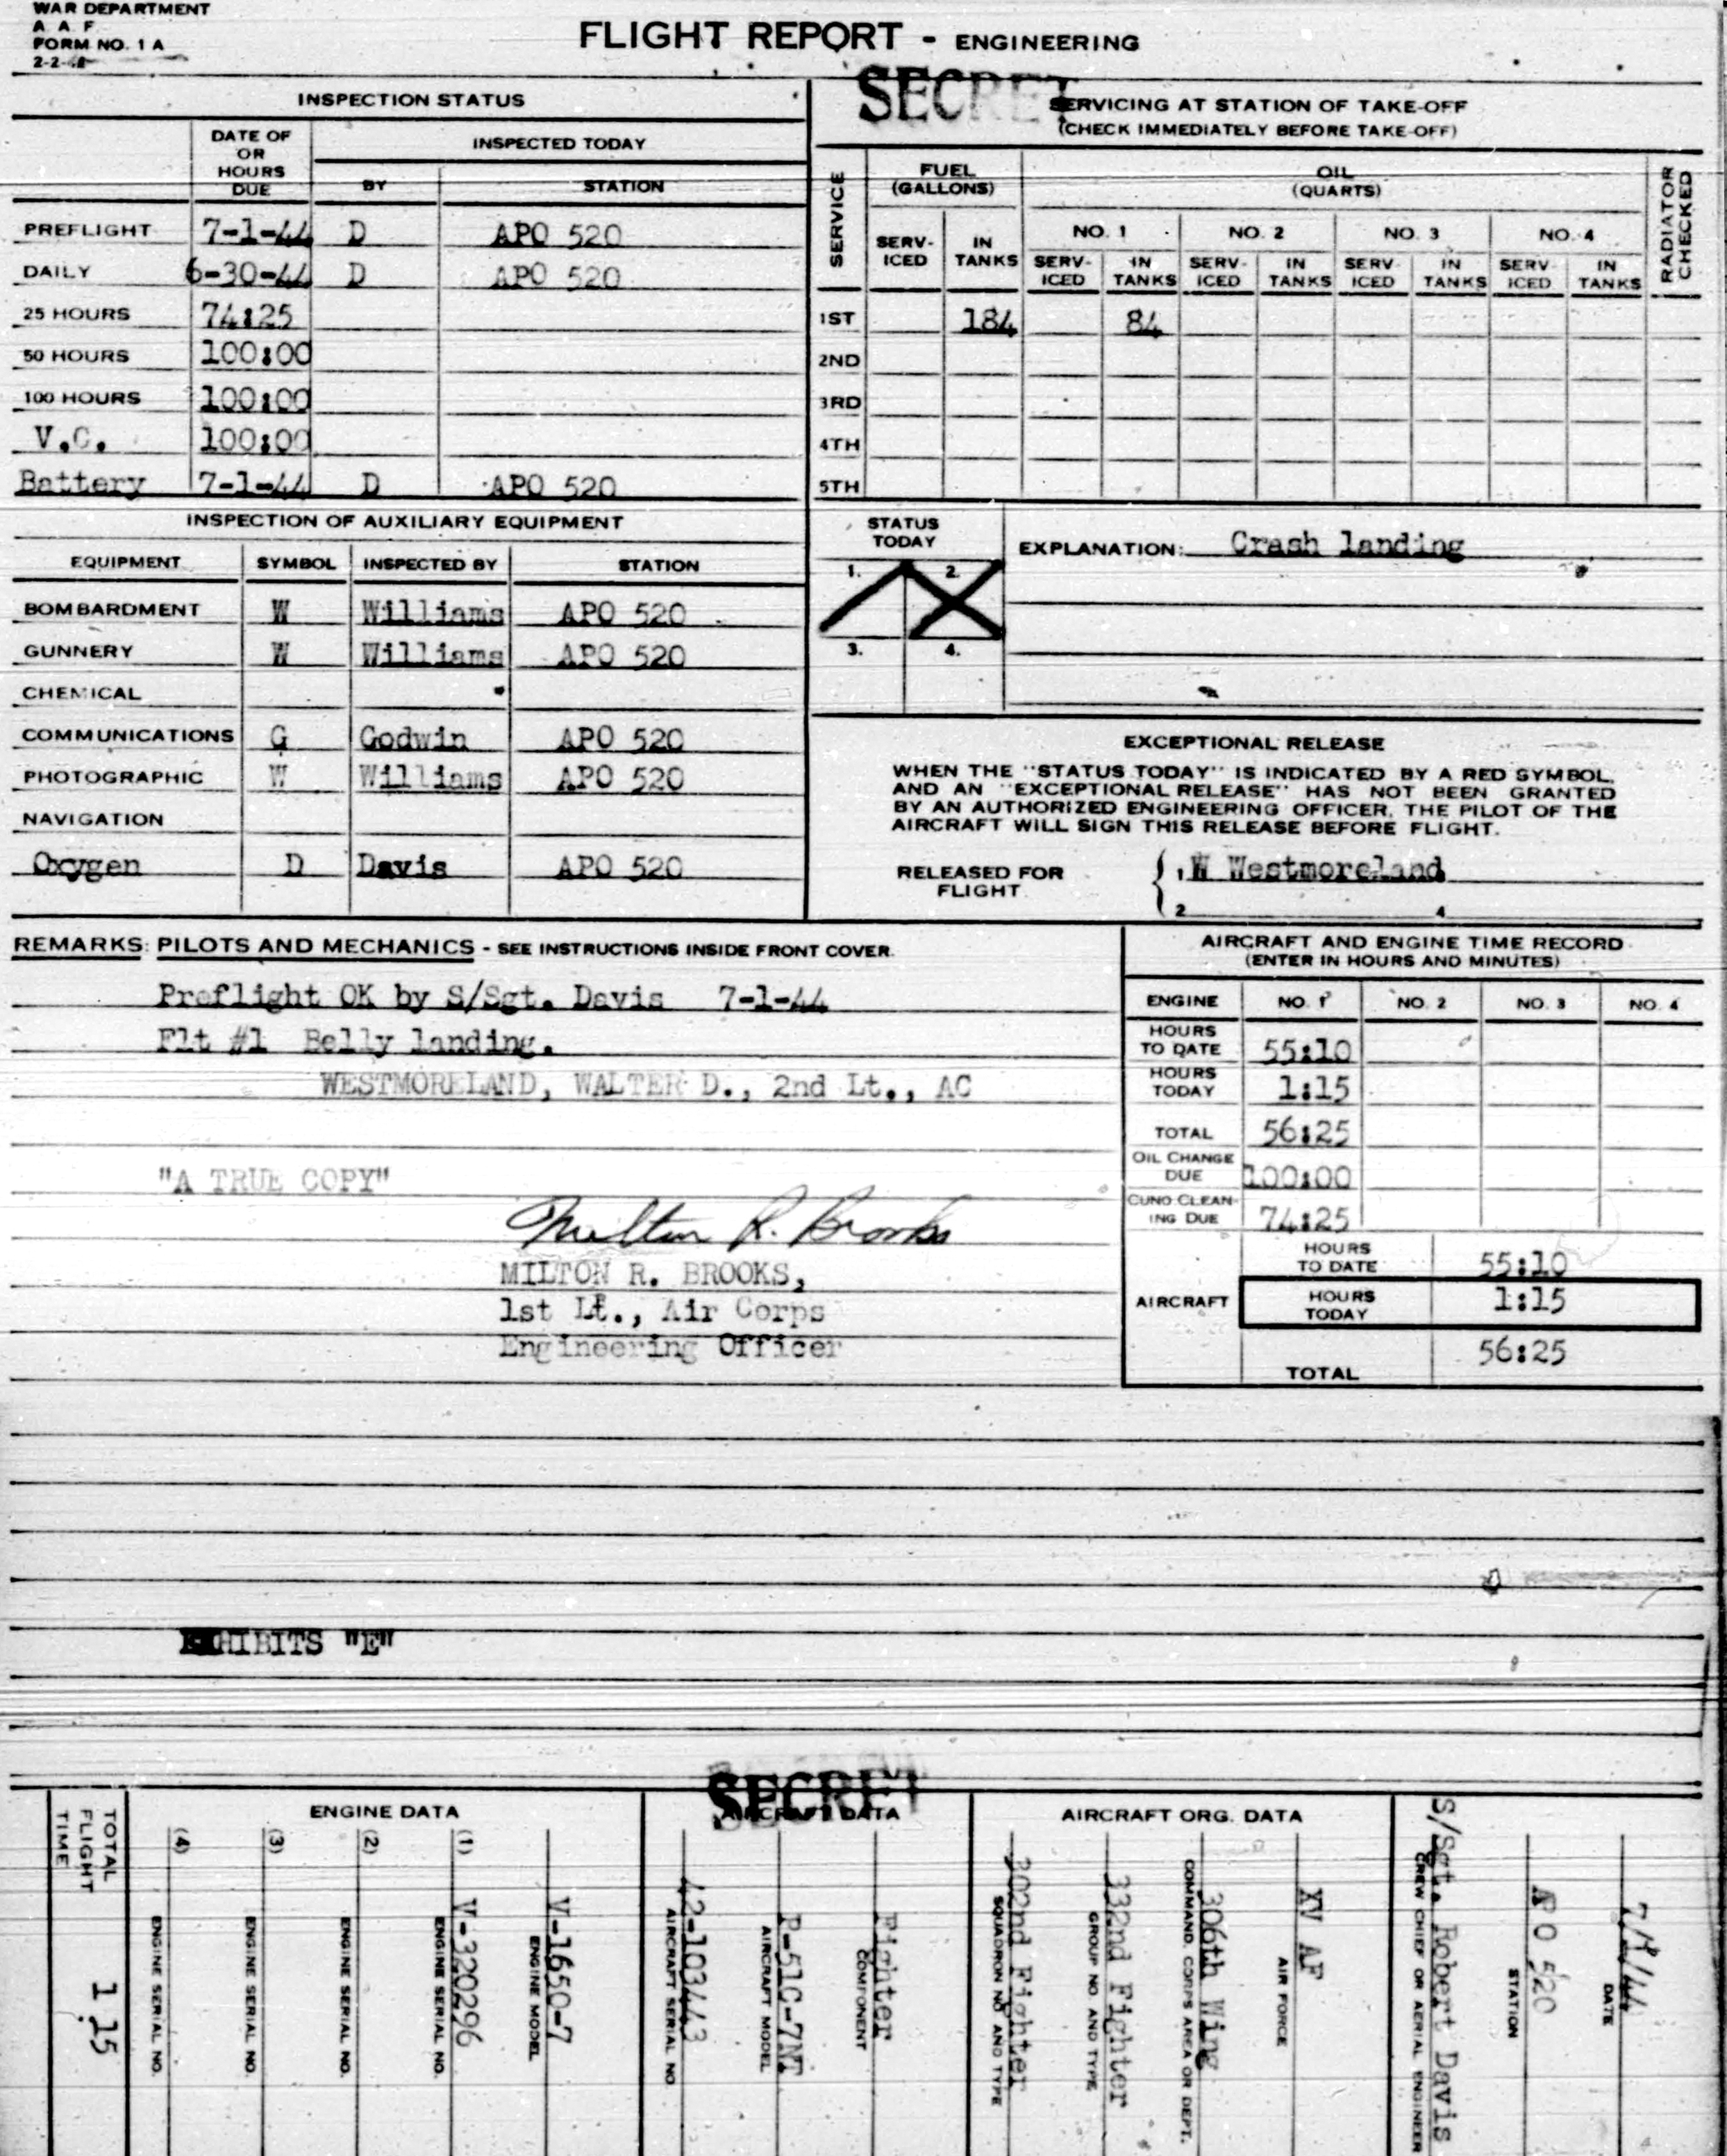 WAR DEPARTMENT
A A F
FORM NO. 1 A
FLIGHT REPORT - ENGINEERING
SECRET
INSPECTION STATUS
DATE OF OR HOURS DUE
INSPECTED TODAY
BY STATION
PREFLIGHT 7-1-44 D APO 520
DAILY 6-30-44 D APO 520
25 HOURS 74:25
50 HOURS 100:00
100 HOURS 100:00
V.C. 100:00
Battery 7-1-44 D APO 520
SERVICING AT STATION OF TAKE-OFF
(CHECK IMMEDIATELY BEFORE TAKE-OFF)
SERVICE
FUEL (GALLONS)
OIL (QUARTS)
RADIATOR CHECKED
NO. 1 NO. 2 NO. 3 NO. 4
SERV-ICED IN TANKS SERV-ICED IN TANKS SERV-ICED IN TANKS SERV-ICED IN TANKS SERV-ICED IN TANKS
1ST 184 84
2ND
3RD
4TH
5TH
INSPECTION OF AUXILIARY EQUIPMENT
EQUIPMENT SYMBOL INSPECTED BY STATION
BOMBARDMENT W Williams APO 520
GUNNERY W Williams APO 520
CHEMICAL
COMMUNICATIONS G Godwin APO 520
PHOTOGRAPHIC W Williams APO 520
NAVIGATION
Oxygen D Davis APO 520
STATUS TODAY
1. 2.
3. 4.
EXPLANATION: Crash landing
EXCEPTIONAL RELEASE
WHEN THE "STATUS TODAY" IS INDICATED BY A RED SYMBOL,
AND AN "EXCEPTIONAL RELEASE" HAS NOT BEEN GRANTED
BY AN AUTHORIZED ENGINEERING OFFICER, THE PILOT OF THE
AIRCRAFT WILL SIGN THIS RELEASE BEFORE FLIGHT.
RELEASED FOR FLIGHT 1 W Westmoreland
2 4
REMARKS: PILOTS AND MECHANICS - SEE INSTRUCTIONS INSIDE FRONT COVER.
Preflight OK by S/Sgt. Davis 7-1-44
Flt #1 Belly landing.
WESTMORELAND, WALTER D., 2nd Lt., AC
"A TRUE COPY"
Milton R. Brooks
MILTON R. BROOKS,
1st Lt., Air Corps
Engineering Officer
AIRCRAFT AND ENGINE TIME RECORD
(ENTER IN HOURS AND MINUTES)
ENGINE NO. 1 NO. 2 NO. 3 NO. 4
HOURS TO DATE 55:10
HOURS TODAY 1:15
TOTAL 56:25
OIL CHANGE DUE 100:00
CUNO CLEAN-ING DUE 74:25
AIRCRAFT
HOURS TO DATE 55:10
HOURS TODAY 1:15
TOTAL 56:25
EXHIBITS "E"
SECRET
TOTAL FLIGHT TIME
1 15
ENGINE DATA
(4) ENGINE SERIAL NO.
(3) ENGINE SERIAL NO.
(2) ENGINE SERIAL NO.
(1) V-320296 ENGINE SERIAL NO.
V-1650-7 ENGINE MODEL
AIRCRAFT DATA
42-103443 AIRCRAFT SERIAL NO.
P-51C-7NT AIRCRAFT MODEL
Fighter COMPONENT
AIRCRAFT ORG. DATA
302nd Fighter SQUADRON NO. AND TYPE
332nd Fighter GROUP NO. AND TYPE
306th Wing COMMAND, CORPS AREA OR DEPT.
XV AF AIR FORCE
S/Sgt. Robert Davis CREW CHIEF OR AERIAL ENGINEER
APO 520 STATION
7/1/44 DATE